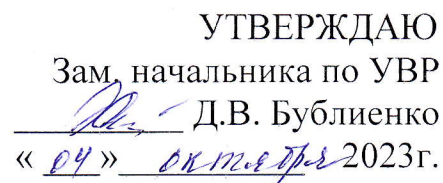 УТВЕРЖДАЮ
Зам. начальника по УВР
Д.В. Бублиенко
« 04 » октября 2023г.